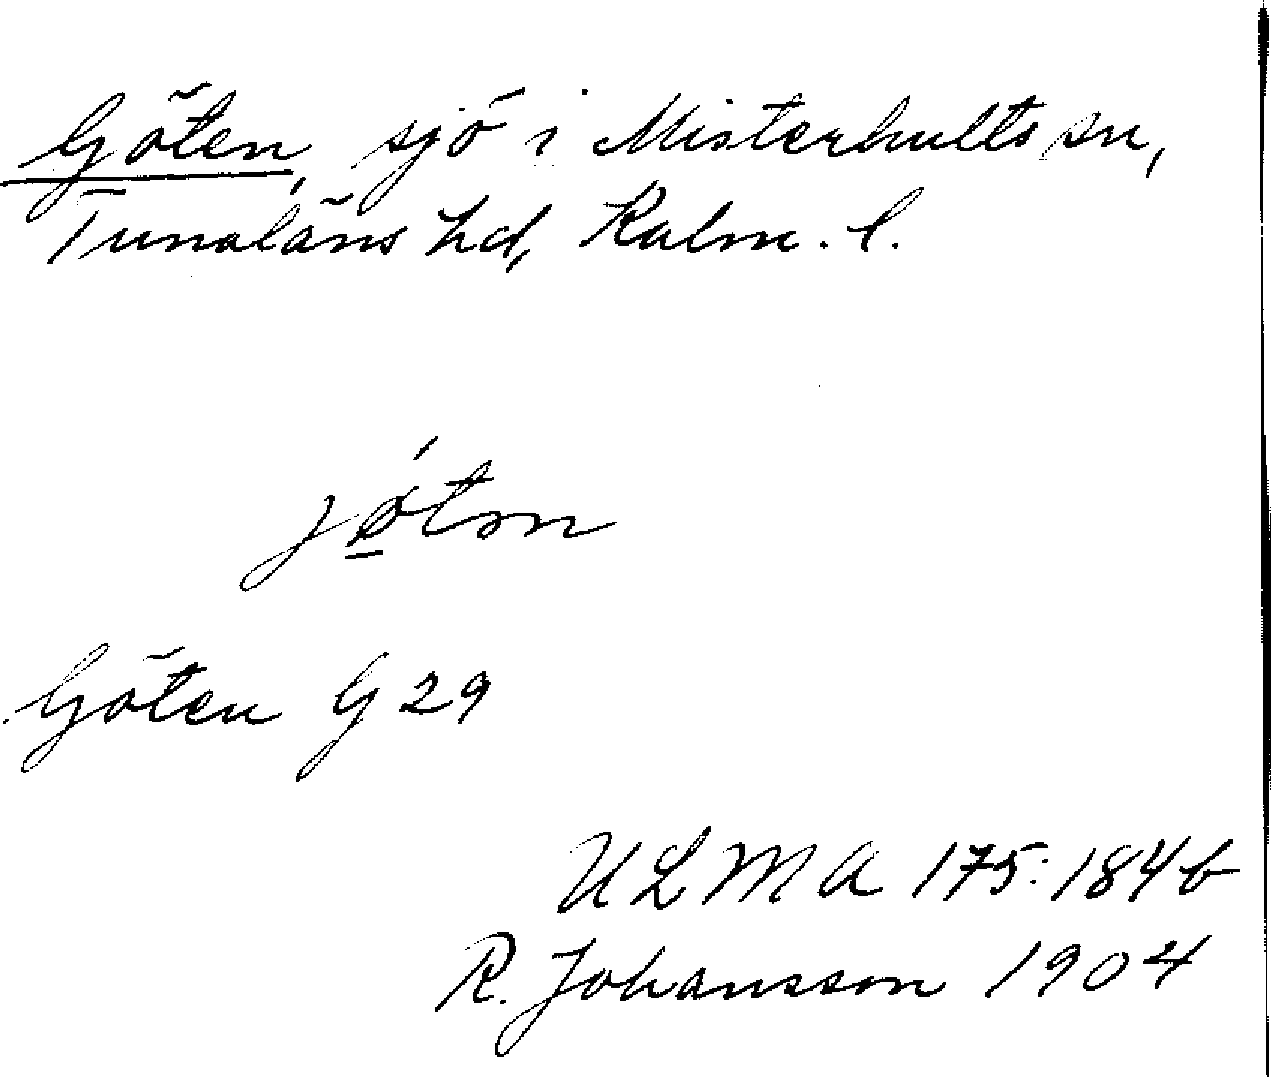 Göten, sjö i Misterhults sn,
Tunaläns hd, Kalm. l.
jǿ̱tɘn
Göten G 29
ULMA 175:184b
R. Johansson 1904